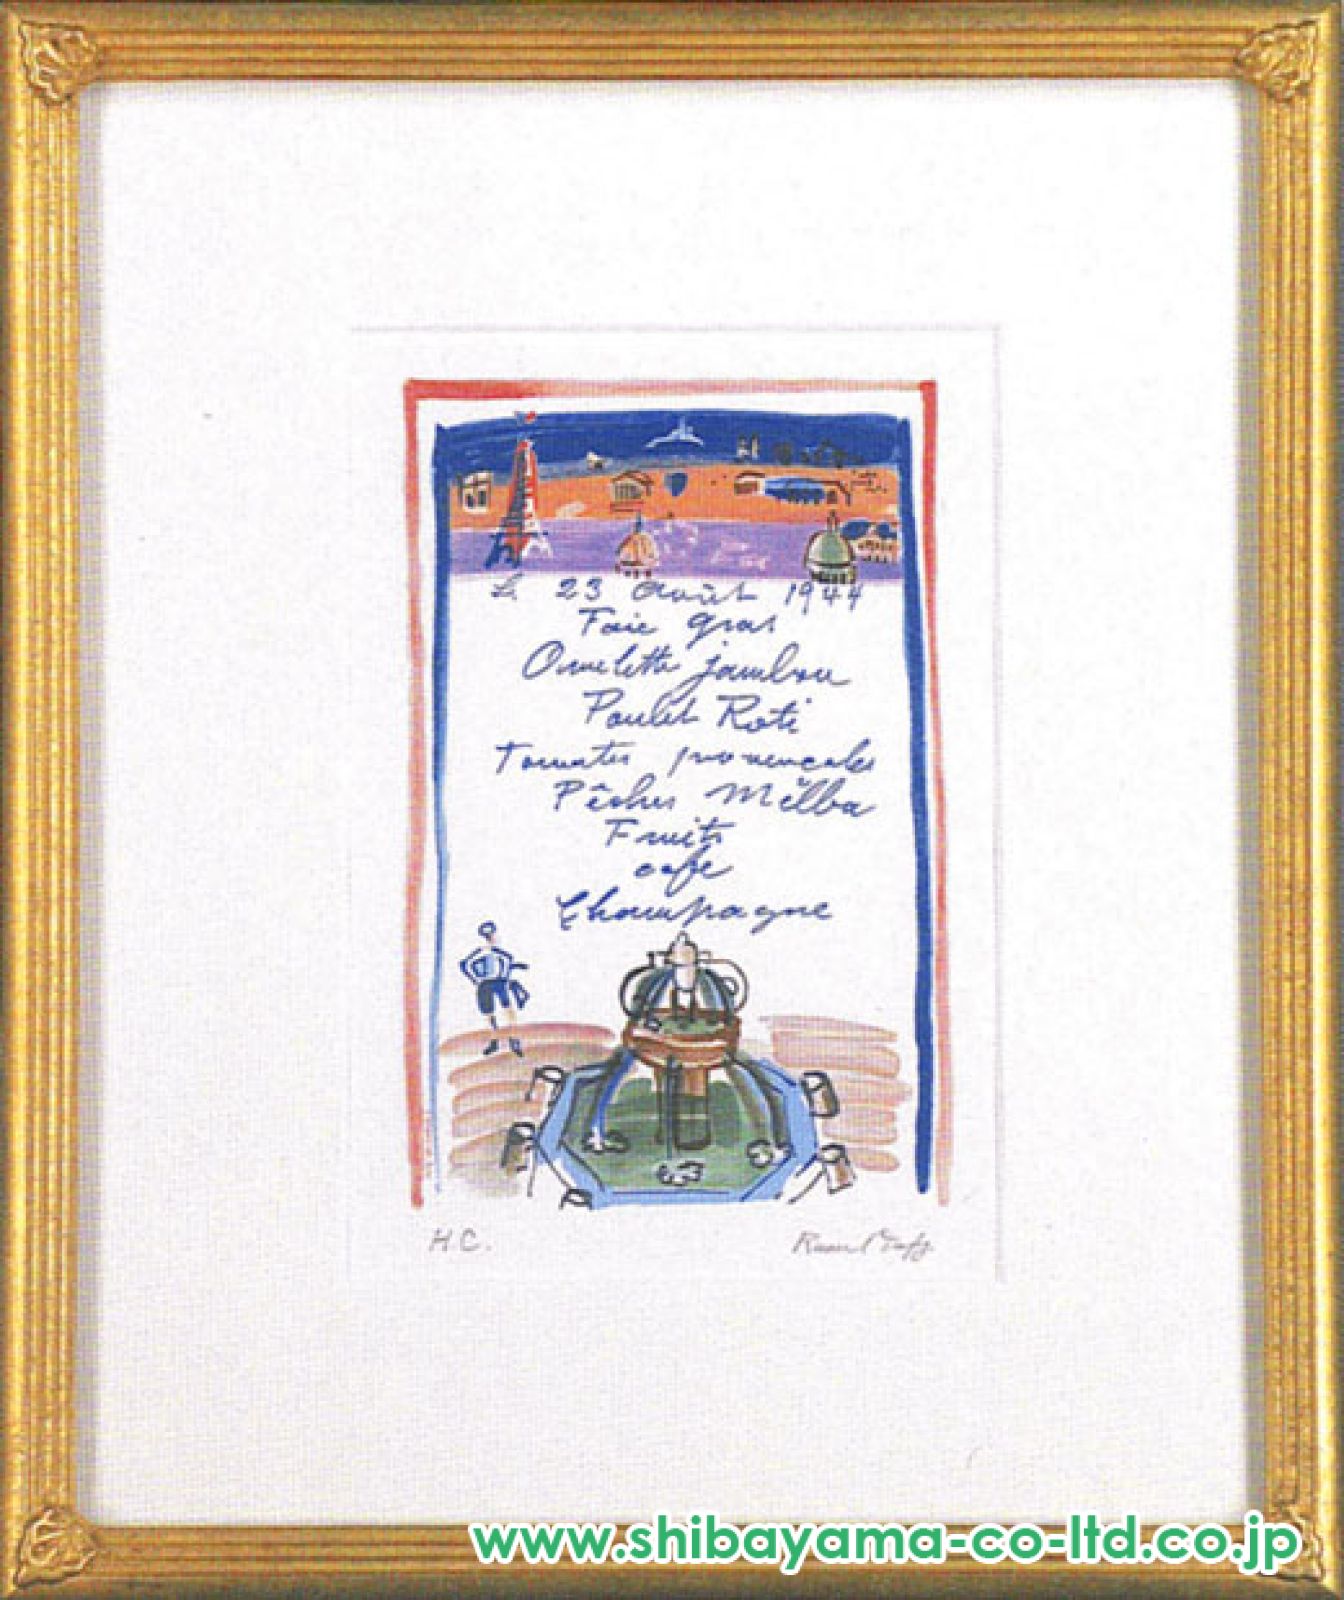 Le 23 Août 1944
Foie gras
Omelette jambon
Poulet Roti
Tomates provençales
Pêches Melba
Fruits
café
Champagne
H.C.
Raoul Dufy
www.shibayama-co-ltd.co.jp